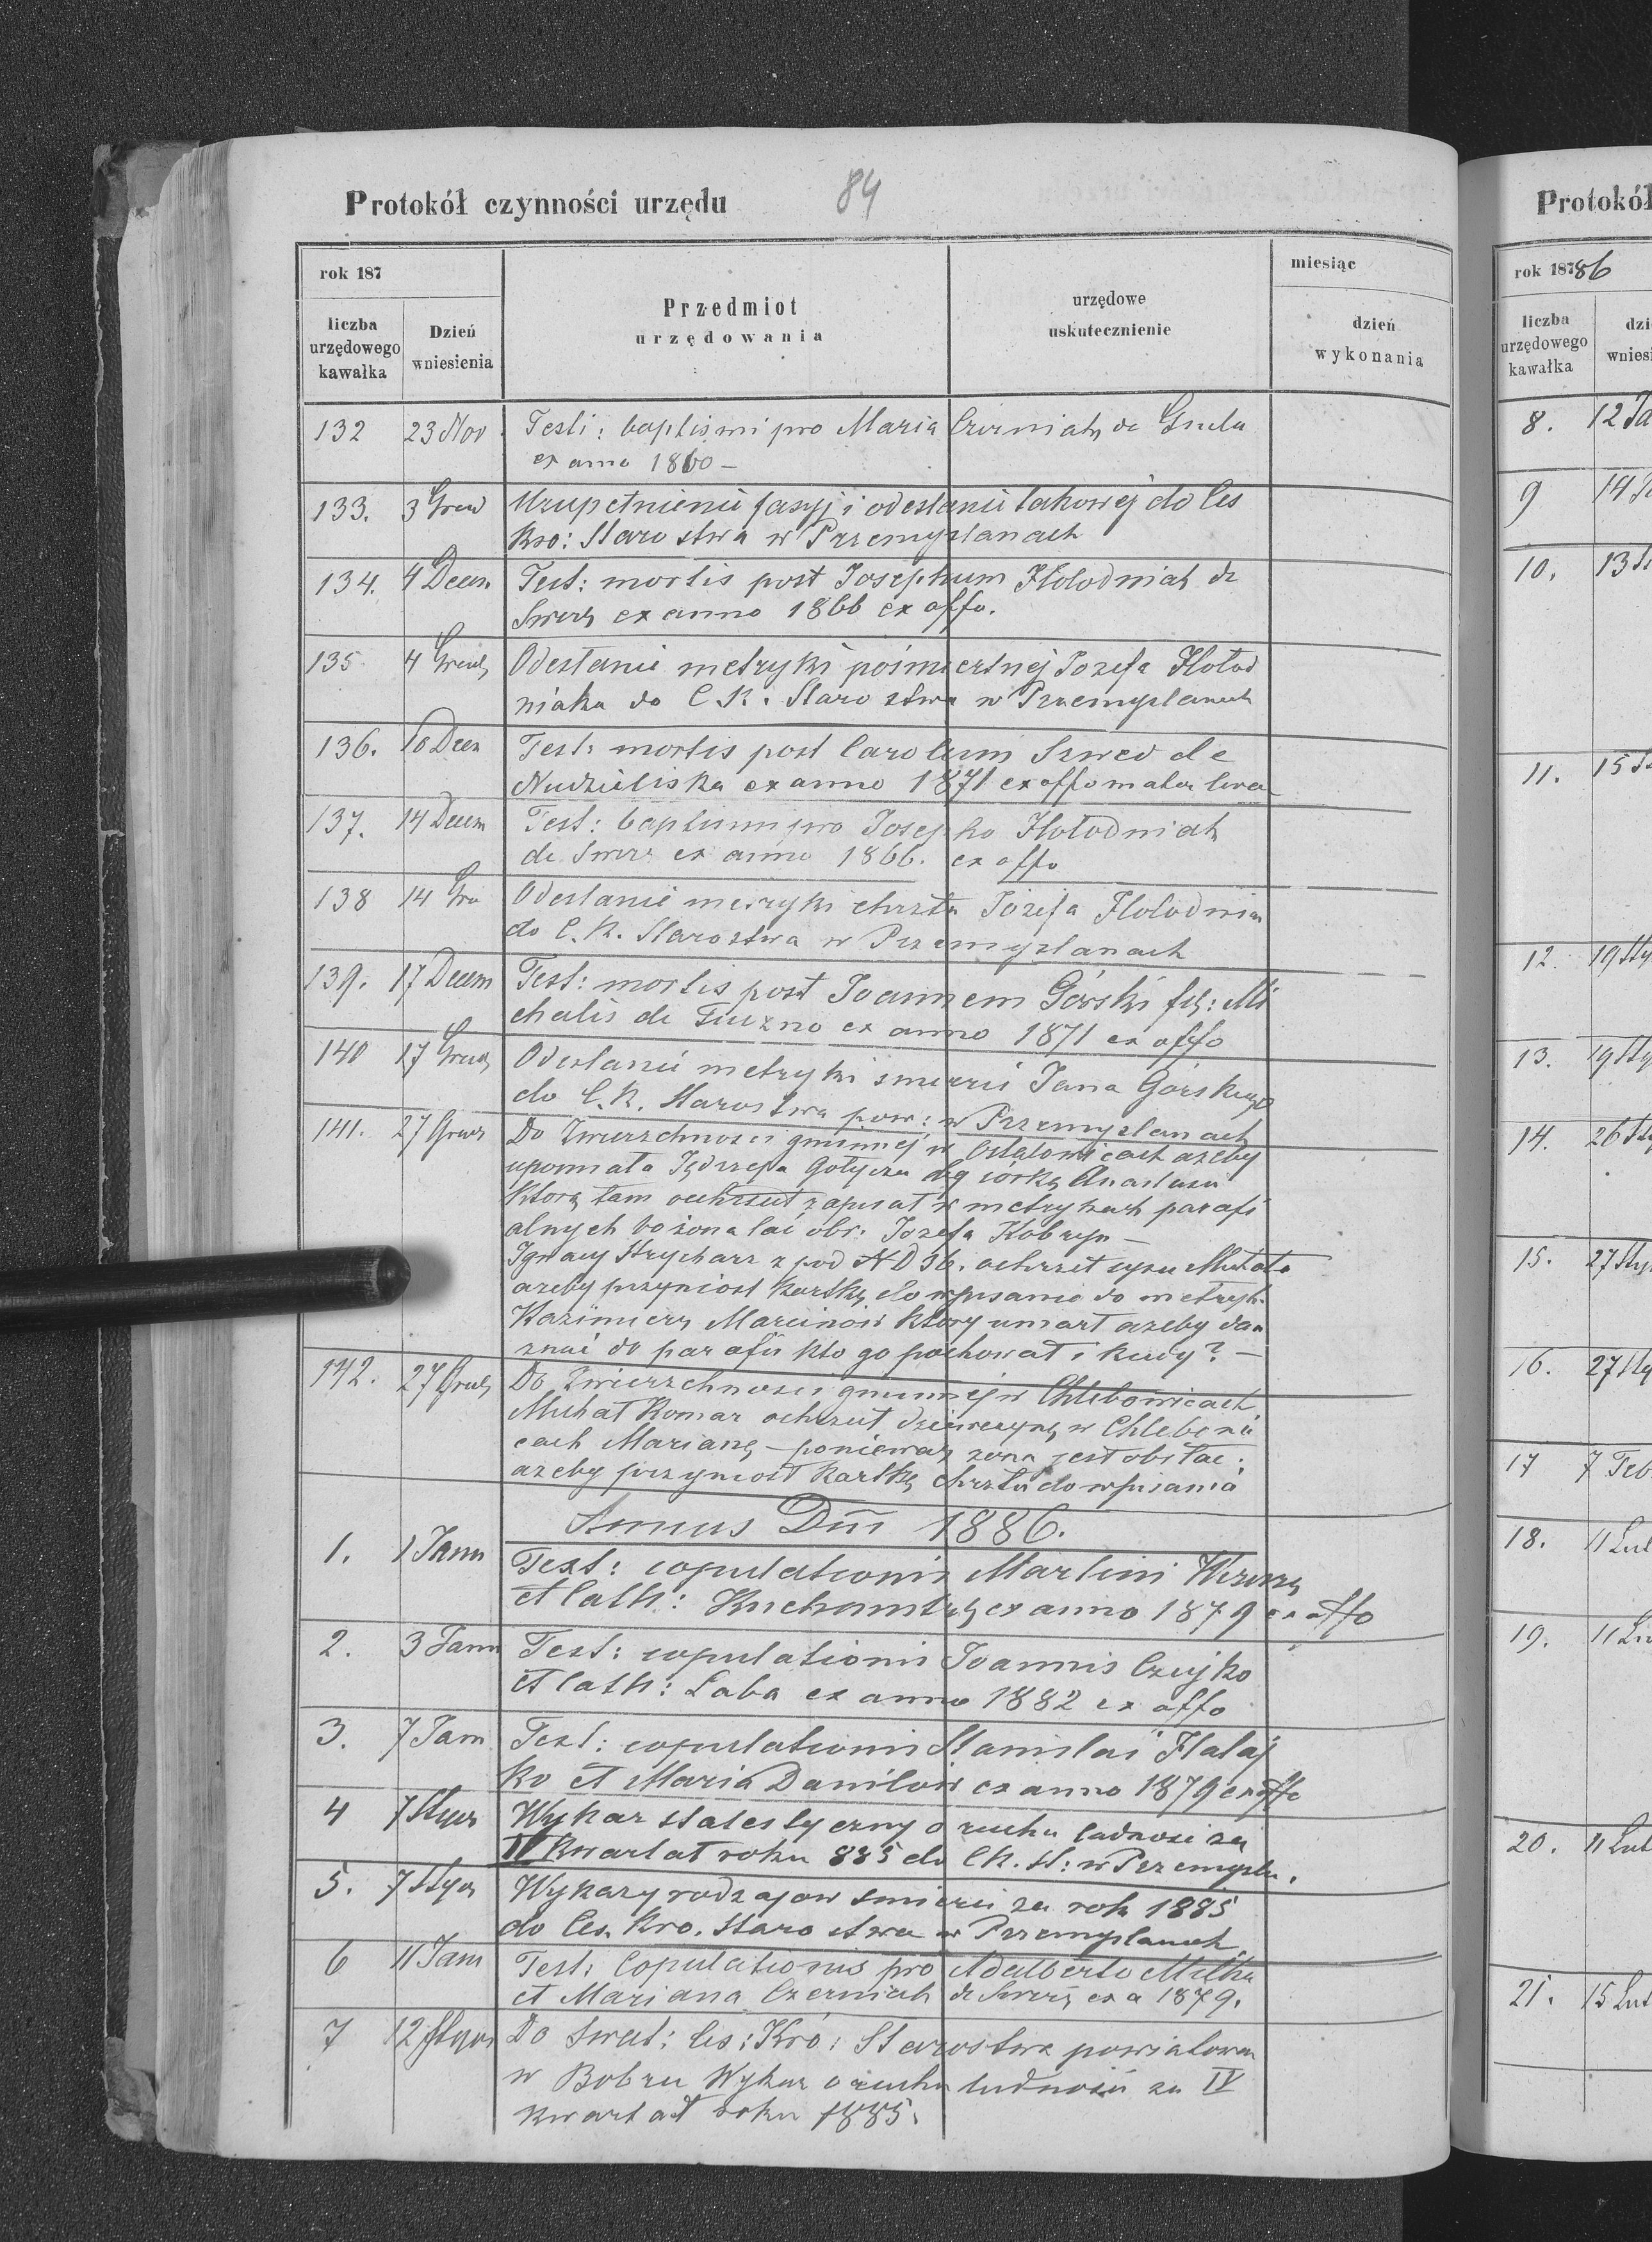 Protokół czynności urzędu 84
rok 187
miesiąc
liczba urzędowego kawałka
Dzień wniesienia
Przedmiot urzędowania
urzędowe uskutecznienie
dzień wykonania
132 23 Nov Testi: baptismi pro Maria de
ex anno 1860 –
133. 3 Grud Uzupełnienie fasyj i odesłanie takowej do Ces
Kro: Starostwa w Przemyslanach
134. 4 Decem Test: mortis post Josephum Hołodniak de
Swirz ex anno 1866 ex offo.
135 4 Grud Odesłanie metryki pośmiertnej Jozefa Hołod
niaka do C. K. Starostwa w Przemyslanach
136. 10 Decem Test: mortis post Carolum Szwed de
ex anno 1871 ex offo
137. 14 Decem Test: baptismi pro Josepho Hołodniak
de Swirz ex anno 1866. ex offo
138 14 Gru Odesłanie metryki chrztu Józefa Hołodnia
do C. K. Starostwa w Przemyslanach
139. 17 Decem Test: mortis post Joannem Górski fil: Mi
chalis de ex anno 1871 ex offo
140 17 Grud Odesłanie metryki smierci Jana Górskiego
do C. K. Starostwa pow: w Przemyslanach
141. 27 Grud Do Zwierzchnosci gminnej w azeby
upomniała Jędrzeja córkę
którą tam ochrzcił zapisał w metrykach parafi
alnych bo żona łać obr: Jozefa Kobryn –
Ignacy Strycharz z pod ND 36. ochrzcił syna
azeby przyniosł kartkę do wpisania do metryk.
Kazimierz który umarł azeby dać
znać do parafii kto go pochował i kiedy? –
142. 27 Grud Do Zwierzchnosci gminnej w Chlebowicach
Michał Komar ochrzcił dziewczynę w Chlebowi
cach Mariannę – ponieważ zona jest ob: łać:
azeby przyniosł kartkę chrztu do wpisania
Annus Dni 1886.
1. 1 Jann Test: copulationis Martini
et Cath: ex anno 1879 ex offo
2. 3 Jann Test: copulationis Joannis Czujko
et Cath: Laba ex anno 1882 ex offo
3. 7 Jann Test: copulationis Stanislai Hałaj
ko et Maria Daniłow ex anno 1879 ex offo
4 7 Stycz Wykaz statestyczny o ruchu ludnosci za
IV kwartał roku 885 do CK. St: w Przemyslan.
5. 7 Stycz Wykazy rodzajow smierci za rok 1885
do Ces. Kro. Starostwa w Przemyslanach
6 11 Jann Test: Copulationis pro Adalberto
et Mariana Czerniak de Swirz ex a 1879.
7 12 Stycz Do Swiet: Ces: Kró: Starostwa powiatowa
w Bobrce Wykaz o ruchu ludności za IV
kwartał roku 1885.
Protokół
rok 187 86
liczba urzędowego kawałka
8. 12 Ja
9
10.
11.
12.
13.
14.
15.
16.
17 7 Feb
18.
19.
20.
21. 15 Lut